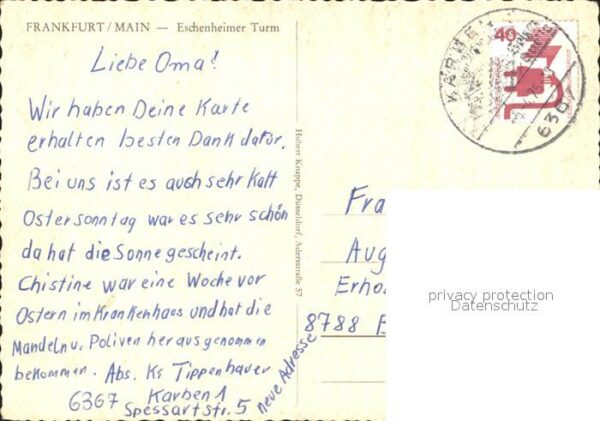 FRANKFURT/MAIN — Eschenheimer Turm
Liebe Oma!
Wir haben Deine Karte
erhalten besten Dank dafür.
Bei uns ist es auch sehr Kalt
Ostersonntag war es sehr schön
da hat die Sonne gescheint.
Chistine war eine Woche vor
Ostern im Krankenhaus und hat die
Mandeln u. Poliven herausgenommen
bekommen. Abs. Ks Tippenhauer
6367 Karben 1
Spessartstr. 5
neue Adresse
Hubert Knappe, Düsseldorf, Adersstraße 57
40
KARBEN
636
Fra
Aug
Erho
8788 B
privacy protection
Datenschutz